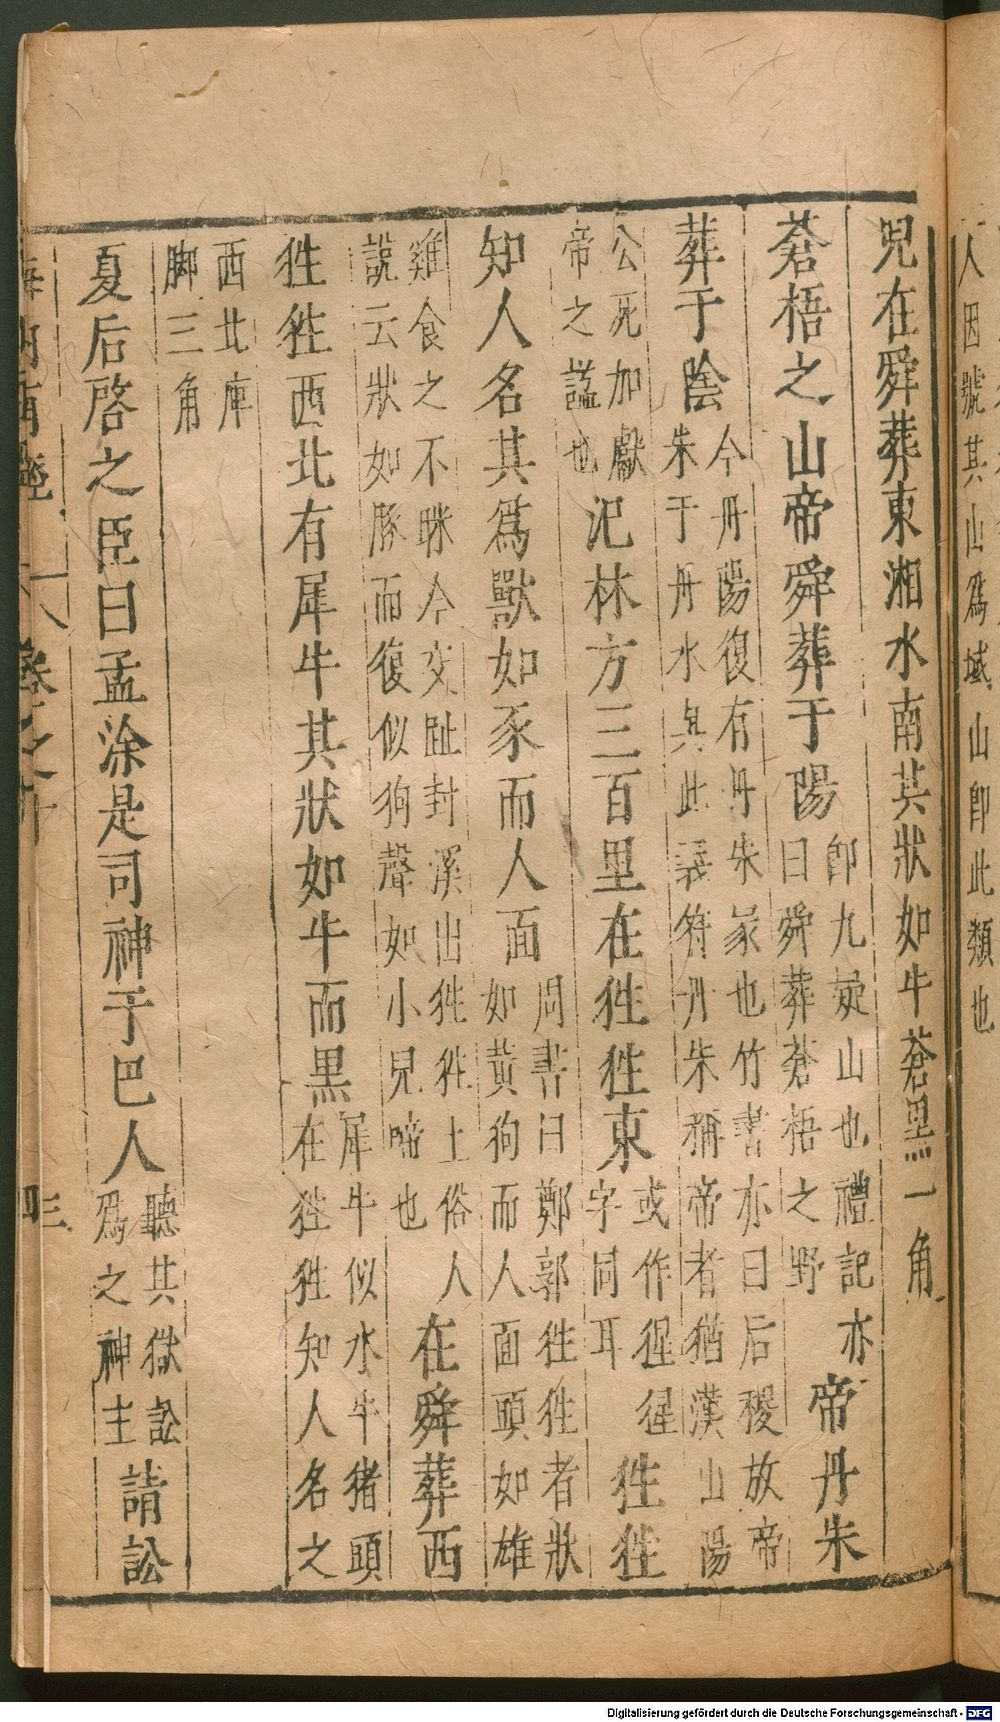 人因號其山爲域山即此類也
兕在舜葬東湘水南其狀如牛蒼黑一角
蒼梧之山帝舜葬于陽
即九疑山也禮記亦
曰舜葬蒼梧之野
帝丹朱
葬于陰
今丹陽復有丹朱冢也竹書亦曰后稷放帝
朱于丹水與此義符丹朱稱帝者猶漢山陽
公死加獻
帝之謚也
氾林方三百里在狌狌東
或作猩猩
字同耳
狌狌
知人名其爲獸如豕而人面
周書曰鄭郭狌狌者狀
如黃狗而人面頭如雄
雞食之不眯今交趾封溪出狌狌土俗人
說云狀如豚而復似狗聲如小兒啼也
在舜葬西
狌狌西北有犀牛其狀如牛而黑
犀牛似水牛猪頭
在狌狌知人名之
西北庳
脚三角
夏后啓之臣曰孟涂是司神于巴人
聽其獄訟
爲之神主
請訟
海內南經
卷之十
Digitalisierung gefördert durch die Deutsche Forschungsgemeinschaft - DFG